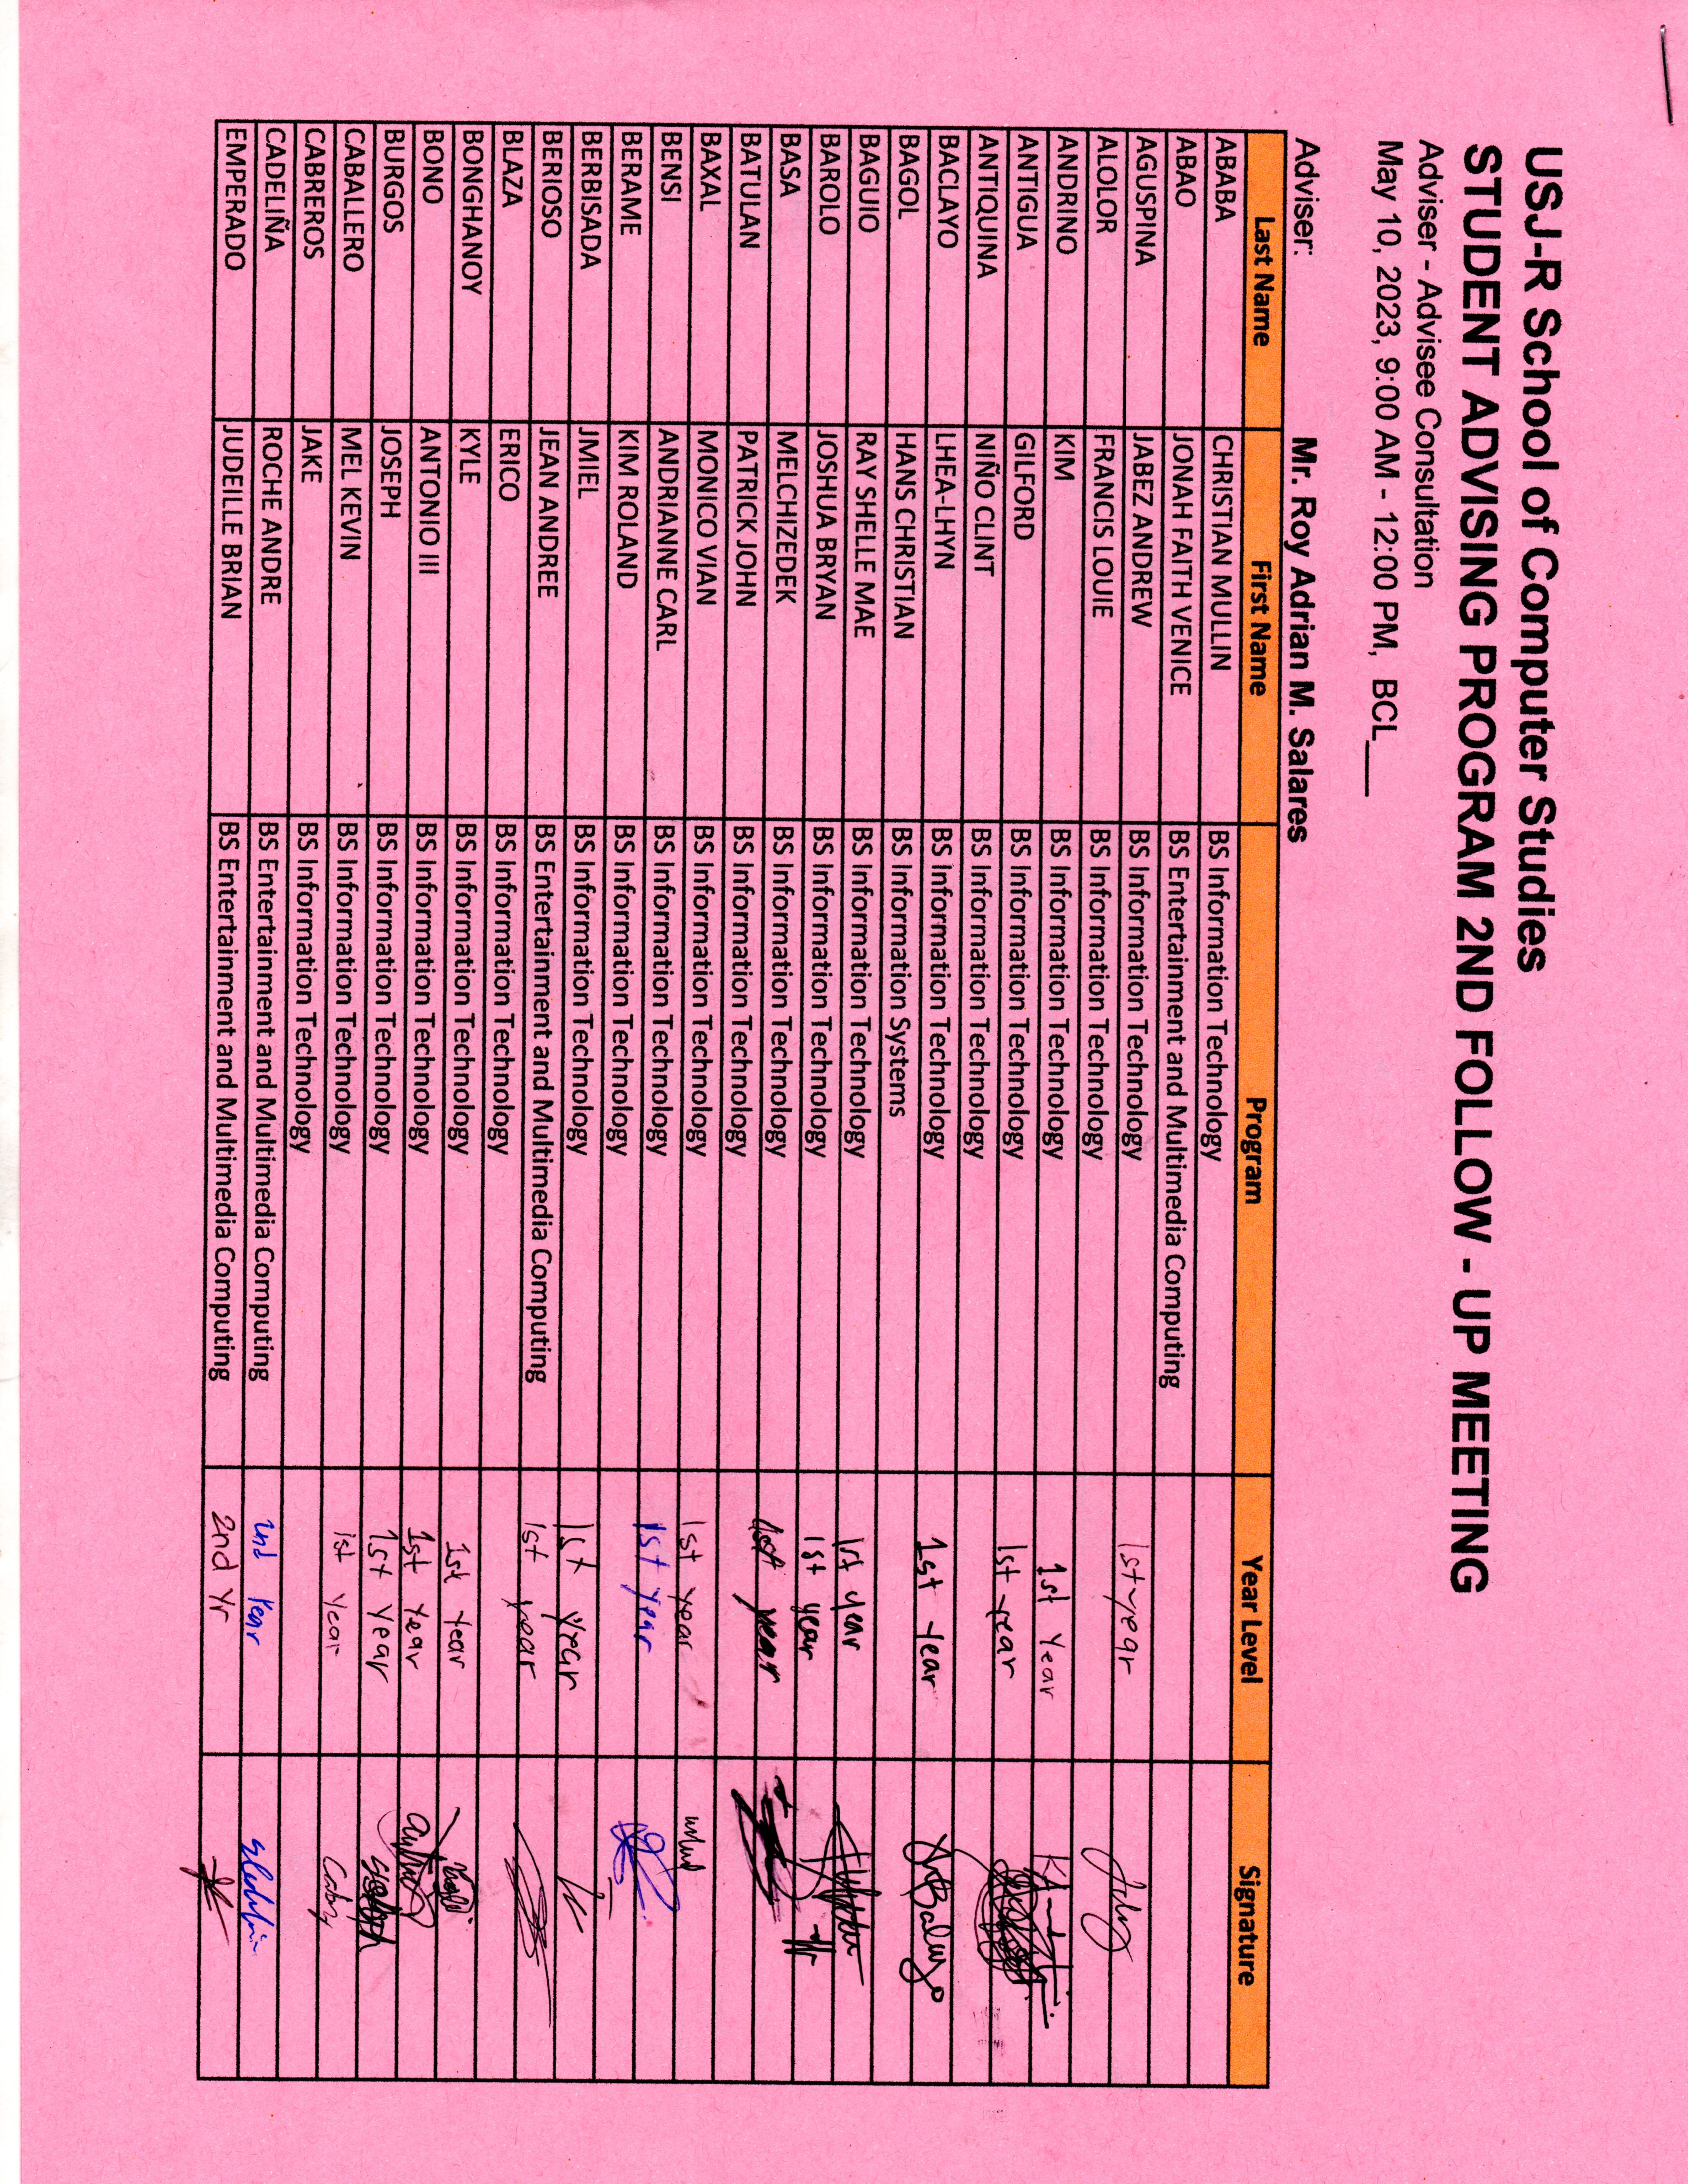 USJ-R School of Computer Studies
STUDENT ADVISING PROGRAM 2ND FOLLOW - UP MEETING
Adviser - Advisee Consultation
May 10, 2023, 9:00 AM - 12:00 PM, BCL___
Adviser: Mr. Roy Adrian M. Salares
Last Name First Name Program Year Level Signature
ABABA CHRISTIAN MULLIN BS Information Technology
ABAO JONAH FAITH VENICE BS Entertainment and Multimedia Computing
AGUSPINA JABEZ ANDREW BS Information Technology 1st year
ALOLOR FRANCIS LOUIE BS Information Technology
ANDRINO KIM BS Information Technology 1st Year
ANTIGUA GILFORD BS Information Technology 1st year
ANTIQUINA NIÑO CLINT BS Information Technology
BACLAYO LHEA-LHYN BS Information Technology 1st Year
BAGOL HANS CHRISTIAN BS Information Systems
BAGUIO RAY SHELLE MAE BS Information Technology 1st year
BAROLO JOSHUA BRYAN BS Information Technology 1st year
BASA MELCHIZEDEK BS Information Technology 1st year
BATULAN PATRICK JOHN BS Information Technology
BAXAL MONICO VIAN BS Information Technology 1st year
BENSI ANDRIANNE CARL BS Information Technology 1st year
BERAME KIM ROLAND BS Information Technology
BERBISADA JMIEL BS Information Technology 1st year
BERIOSO JEAN ANDREE BS Entertainment and Multimedia Computing 1st year
BLAZA ERICO BS Information Technology
BONGHANOY KYLE BS Information Technology 1st Year
BONO ANTONIO III BS Information Technology 1st Year
BURGOS JOSEPH BS Information Technology 1st Year
CABALLERO MEL KEVIN BS Information Technology 1st Year
CABREROS JAKE BS Information Technology
CADELIÑA ROCHE ANDRE BS Entertainment and Multimedia Computing 2nd Year
EMPERADO JUDEILLE BRIAN BS Entertainment and Multimedia Computing 2nd Yr